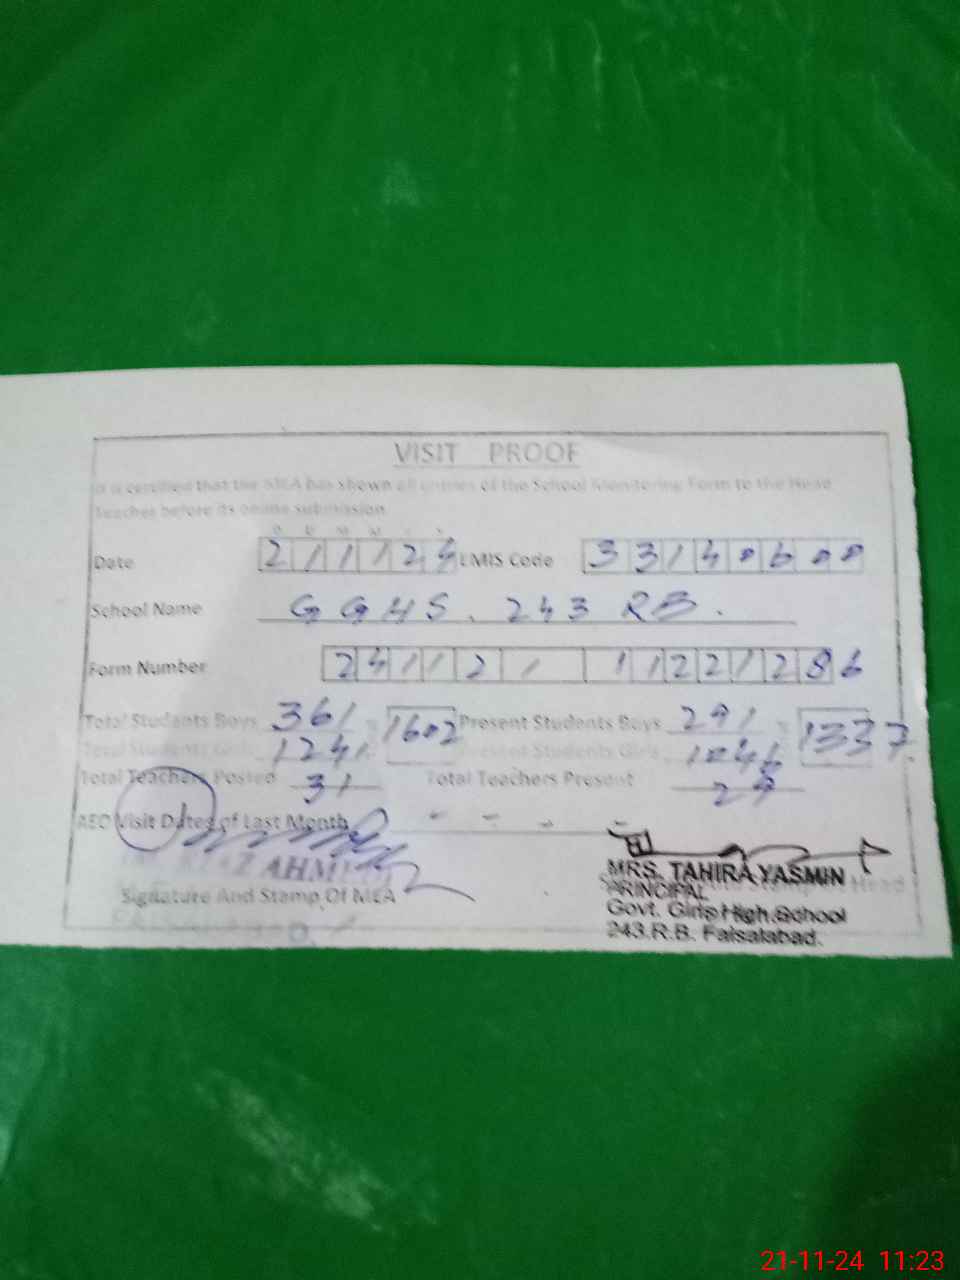 VISIT PROOF
It is certified that the MEA has shown all entries of the School Monitoring Form to the Head
Teacher before its online submission
D D M M Y Y
Date 211124 EMIS Code 33140600
School Name GGHS. 243 RB.
Form Number 241121 11221286
Total Students Boys 361 1602 Present Students Boys 291 1337
Total Students Girls 1241 Present Students Girls 1046
Total Teachers Posted 31 Total Teachers Present 29
AEO Visit Dates of Last Month - - - -
AHMED
Signature And Stamp Of MEA
Head
MRS. TAHIRA YASMIN
PRINCIPAL
Govt. Girls High School
243.R.B. Faisalabad.
21-11-24 11:23